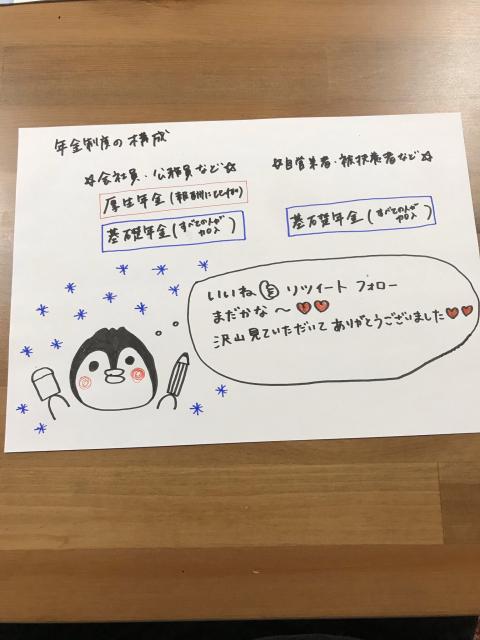 年金制度の構成
☆会社員・公務員など☆
厚生年金(報酬に比例)
基礎年金(すべての人が加入)
☆自営業者・被扶養者など☆
基礎年金(すべての人が加入)
いいね リツイート フォロー
まだかな〜
沢山見ていただいてありがとうございました